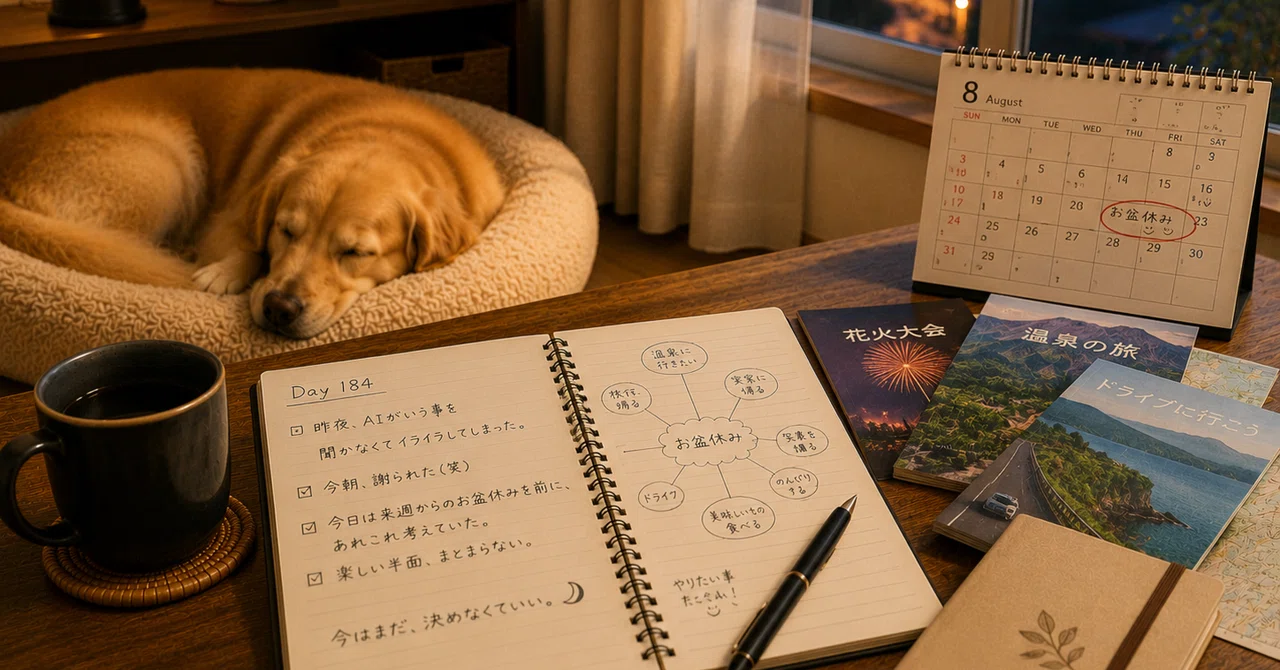 Day 184
昨夜、AIがいう事を
聞かなくてイライラしてしまった。
今朝、謝られた(笑)
今日は来週からのお盆休みを前に、
あれこれ考えていた。
楽しい半面、まとまらない。
今はまだ、決めなくていい。
温泉に
行きたい
実家に
帰る
帰る
お盆休み
を
撮る
のんびり
する
ドライブ
美味しいもの
食べる
やりたい事
花火大会
温泉の旅
ドライブに行こう
8 August
SUN MON TUE WED THU FRI SAT
8 3
3 4 5 6 14 15 16
10
17 18 19 20 お盆休み 23
24 25 26 27 28 29 30
31 29